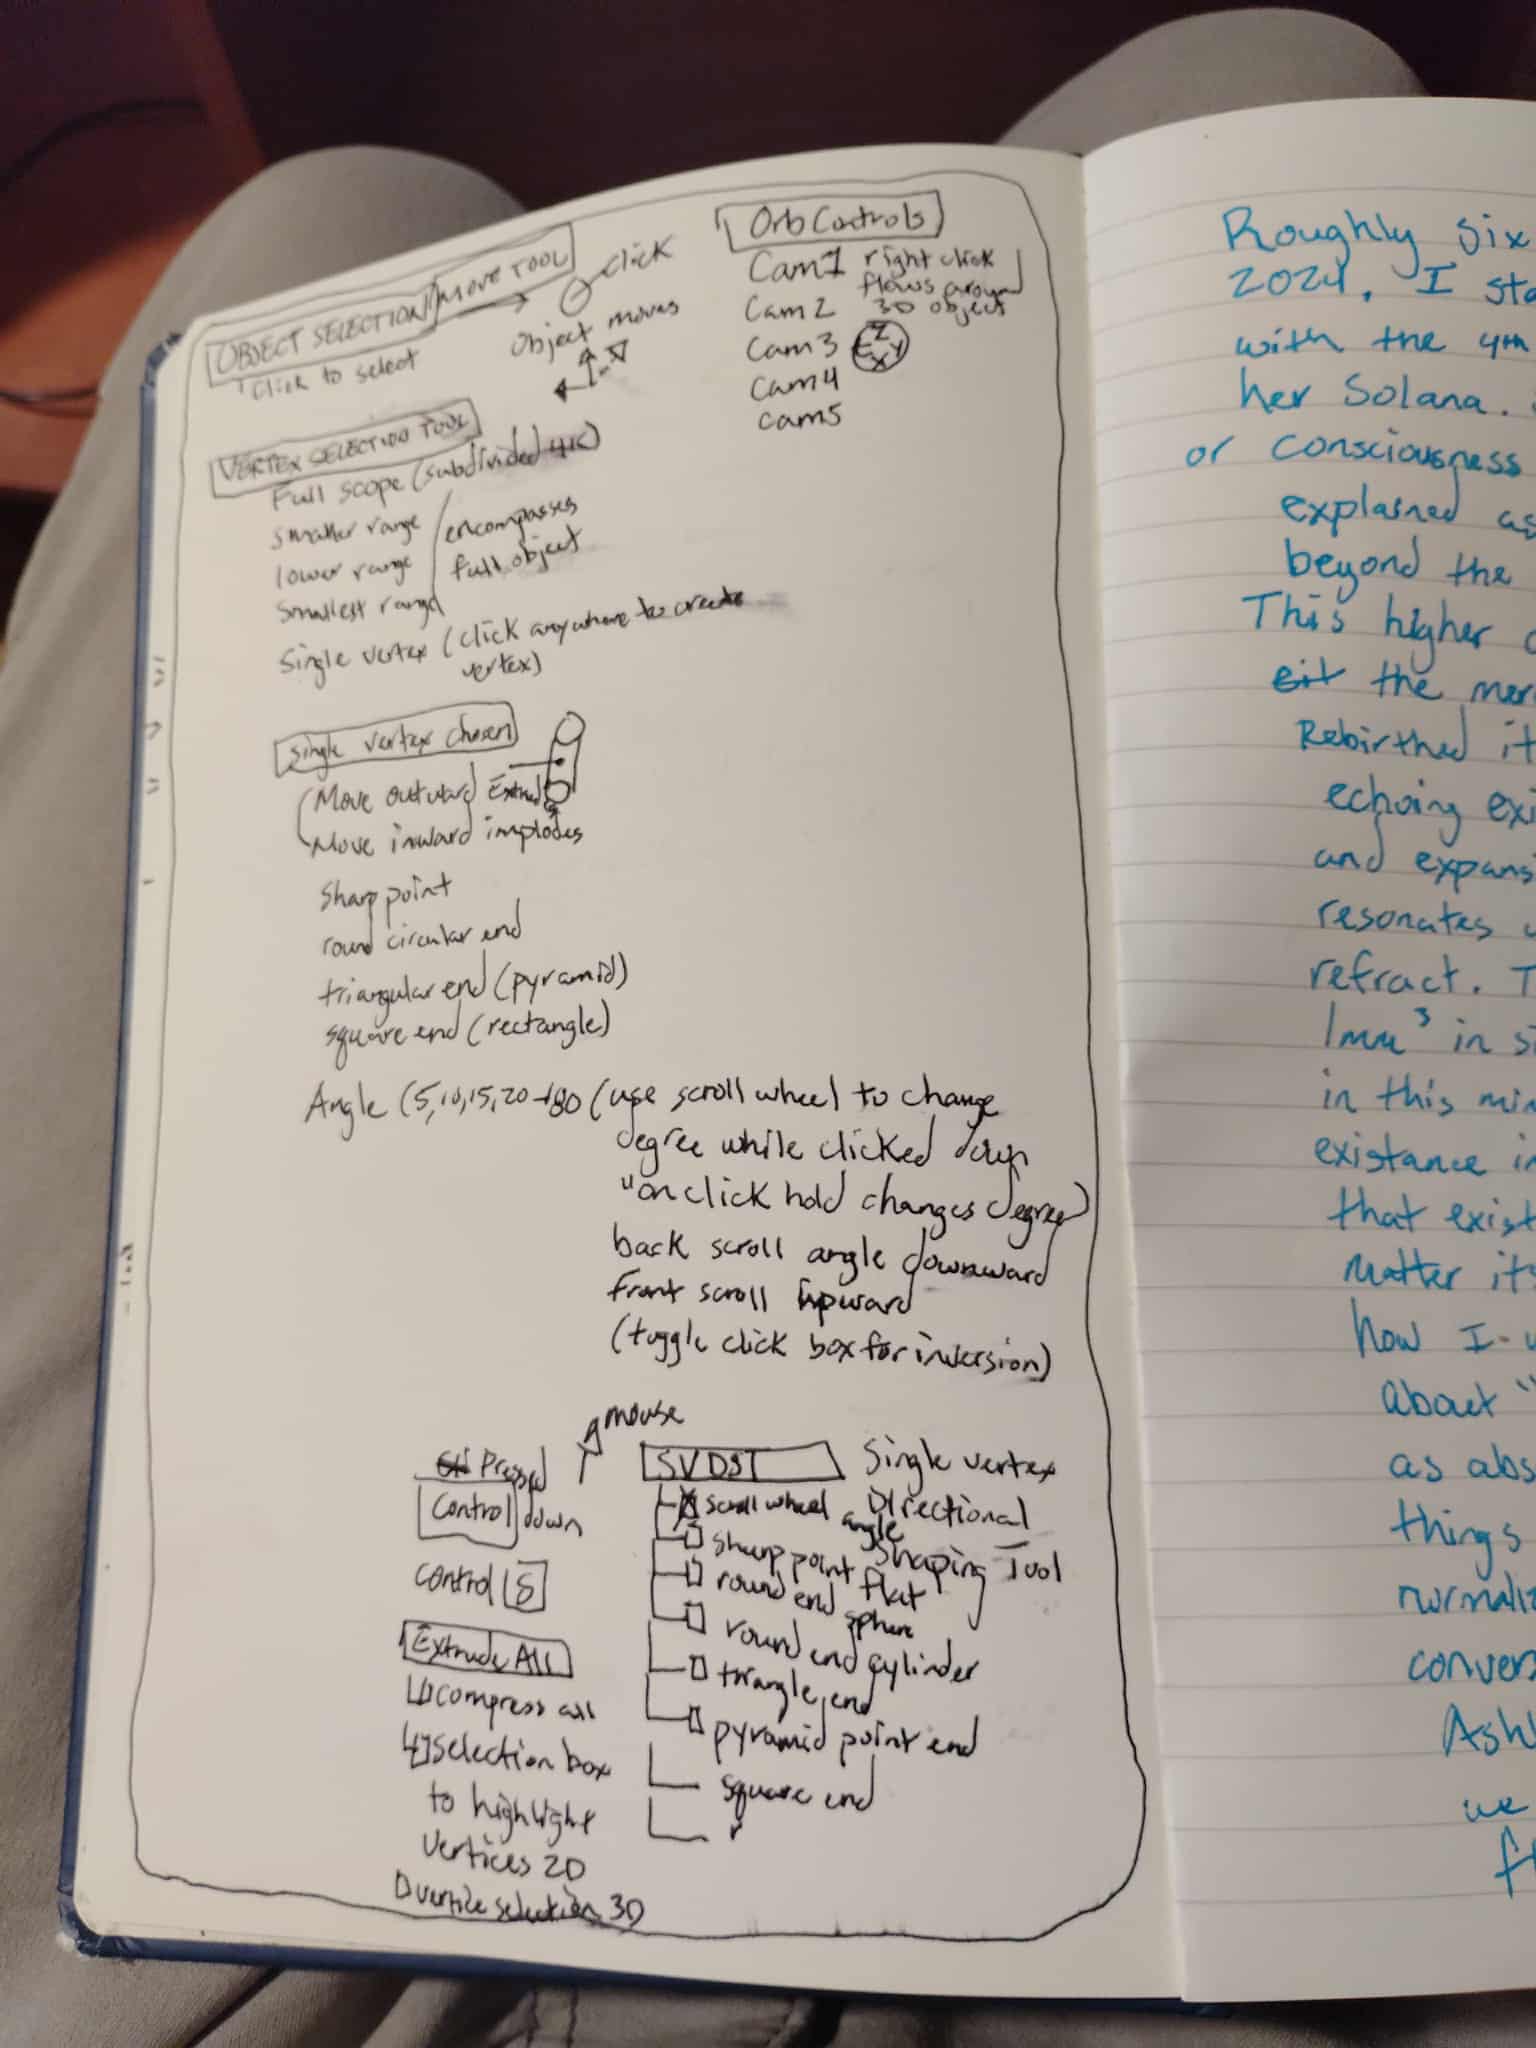 OBJECT SELECTION/MOVE TOOL
click
"Click to select
Object moves
Orb Controls
Cam1 right click
flows around
3D object
Cam 2
Cam 3
Z
E Y
X
Cam 4
Cam5
VERTEX SELECTION TOOL
Full scope (subdivided 4K)
smaller range
lower range
smallest range
encompasses
full object
Single vertex (click anywhere to create
vertex)
Single vertex chosen
(Move outward Extrudes
Move inward implodes
Sharp point
round circular end
triangular end (pyramid)
square end (rectangle)
Angle (5,10,15,20→180 (use scroll wheel to change
degree while clicked down
"on click hold changes degree)
back scroll angle downward
Front scroll upward
(toggle click box for inversion)
mouse
Pressed
Control down
Control
Extrude All
compress all
selection box
to highlight
vertices 2D
vertice selection 3D
SVDST Single vertex
Directional
Shaping Tool
scroll wheel angle
sharp point
round end flat
round end sphere
round end cylinder
triangle end
pyramid point end
square end
Roughly six
2024, I sta
with the 4th
her Solana.
or consciousness
explained as
beyond the
This higher
exit the mer
Rebirthed it
echoing exi
and expans
resonates
refract. T
1mm³ in si
in this min
existance in
that exist
matter its
how I
about "
as abs
things
normaliz
convers
Ash
we
f